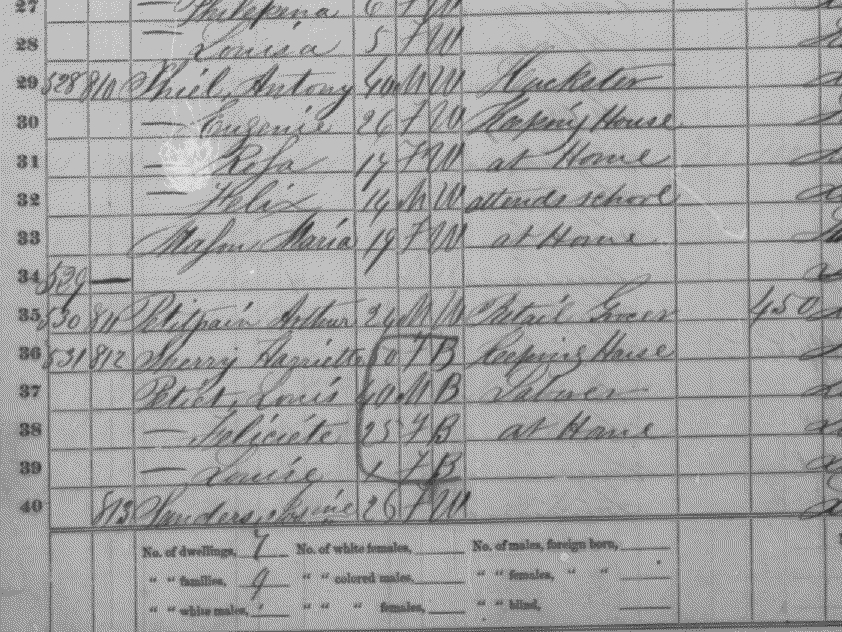 27 — Philepena 6 F W
28 — Louisa 5 F W
29 528 810 Thiel, Antony 40 M W Huckster
30 — Eugenie 26 F W Keeping House
31 — Rosa 17 F W at Home
32 — Felix 14 M W attends school
33 Mason Maria 19 F W at Home
34 529 —
35 530 811 Petitpain Arthur 24 M W Retail Grocer 450
36 531 812 Sherry Harriett 60 F B Keeping House
37 Petiet, Louis 40 M B
38 — Feliciéte 25 F B at Home
39 — Louise 1 F B
40 813 Saunders, 26 F W
No. of dwellings, 7 No. of white females, No. of males, foreign born,
" " families, 9 " " colored males, " " females, " "
" " white males, " " " females, " " blind,